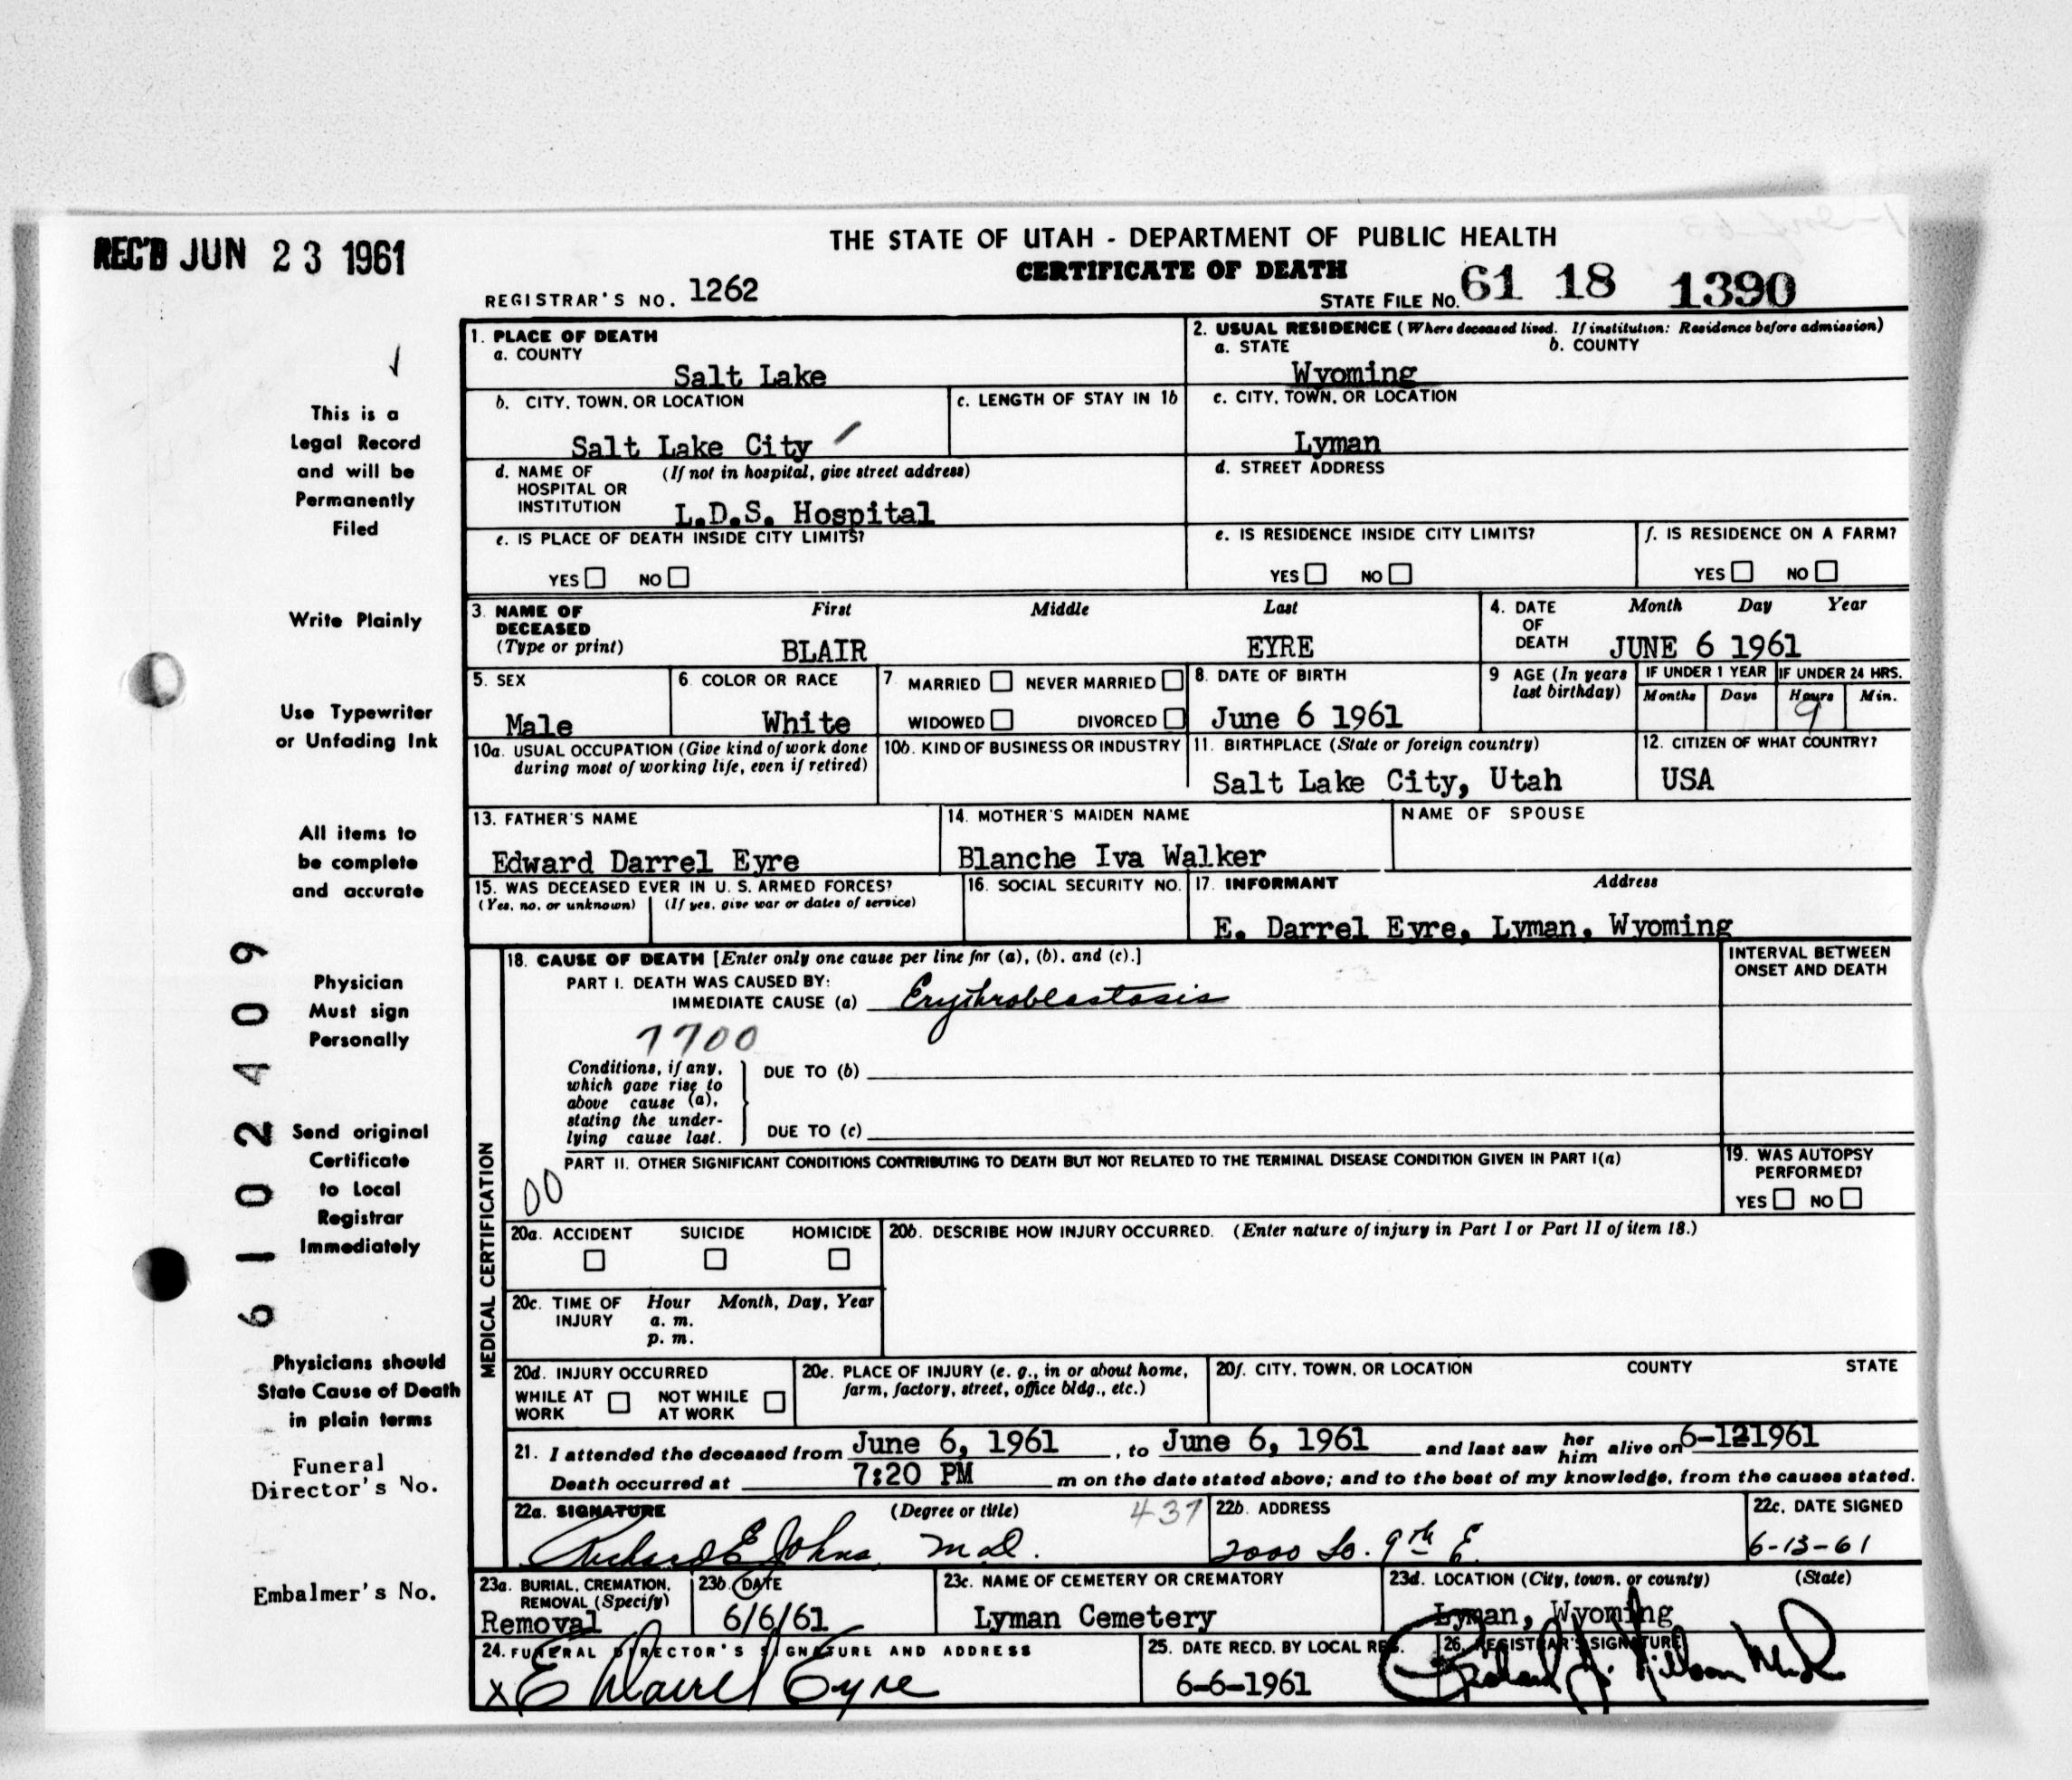 REC'D JUN 23 1961
THE STATE OF UTAH - DEPARTMENT OF PUBLIC HEALTH
CERTIFICATE OF DEATH
REGISTRAR'S NO. 1262
STATE FILE NO. 61 18 1390
This is a
Legal Record
and will be
Permanently
Filed
Write Plainly
Use Typewriter
or Unfading Ink
All items to
be complete
and accurate
Physician
Must sign
Personally
Send original
Certificate
to Local
Registrar
Immediately
Physicians should
State Cause of Death
in plain terms
Funeral
Director's No.
Embalmer's No.
6102409
1. PLACE OF DEATH
a. COUNTY
Salt Lake
2. USUAL RESIDENCE (Where deceased lived. If institution: Residence before admission)
a. STATE b. COUNTY
Wyoming
b. CITY, TOWN, OR LOCATION
Salt Lake City
c. LENGTH OF STAY IN 1b
c. CITY, TOWN, OR LOCATION
Lyman
d. NAME OF (If not in hospital, give street address)
HOSPITAL OR
INSTITUTION L.D.S. Hospital
d. STREET ADDRESS
e. IS PLACE OF DEATH INSIDE CITY LIMITS?
YES NO
e. IS RESIDENCE INSIDE CITY LIMITS?
YES NO
f. IS RESIDENCE ON A FARM?
YES NO
3. NAME OF First Middle Last
DECEASED
(Type or print) BLAIR EYRE
4. DATE Month Day Year
OF
DEATH JUNE 6 1961
5. SEX
Male
6. COLOR OR RACE
White
7 MARRIED NEVER MARRIED
WIDOWED DIVORCED
8. DATE OF BIRTH
June 6 1961
9 AGE (In years
last birthday)
IF UNDER 1 YEAR IF UNDER 24 HRS.
Months Days Hours Min.
9
10a. USUAL OCCUPATION (Give kind of work done
during most of working life, even if retired)
10b. KIND OF BUSINESS OR INDUSTRY
11. BIRTHPLACE (State or foreign country)
Salt Lake City, Utah
12. CITIZEN OF WHAT COUNTRY?
USA
13. FATHER'S NAME
Edward Darrel Eyre
14. MOTHER'S MAIDEN NAME
Blanche Iva Walker
NAME OF SPOUSE
15. WAS DECEASED EVER IN U. S. ARMED FORCES?
(Yes, no, or unknown) (If yes, give war or dates of service)
16. SOCIAL SECURITY NO.
17. INFORMANT Address
E. Darrel Eyre, Lyman, Wyoming
MEDICAL CERTIFICATION
18. CAUSE OF DEATH [Enter only one cause per line for (a), (b), and (c).]
INTERVAL BETWEEN
ONSET AND DEATH
PART I. DEATH WAS CAUSED BY:
IMMEDIATE CAUSE (a) Erythroblastosis
7700
Conditions, if any,
which gave rise to
above cause (a),
stating the under-
lying cause last.
DUE TO (b)
DUE TO (c)
PART II. OTHER SIGNIFICANT CONDITIONS CONTRIBUTING TO DEATH BUT NOT RELATED TO THE TERMINAL DISEASE CONDITION GIVEN IN PART I(a)
00
19. WAS AUTOPSY
PERFORMED?
YES NO
20a. ACCIDENT SUICIDE HOMICIDE
20b. DESCRIBE HOW INJURY OCCURRED. (Enter nature of injury in Part I or Part II of item 18.)
20c. TIME OF Hour Month, Day, Year
INJURY a. m.
p. m.
20d. INJURY OCCURRED
WHILE AT NOT WHILE
WORK AT WORK
20e. PLACE OF INJURY (e. g., in or about home,
farm, factory, street, office bldg., etc.)
20f. CITY, TOWN, OR LOCATION COUNTY STATE
21. I attended the deceased from June 6, 1961, to June 6, 1961 and last saw her him alive on 6-12 1961
Death occurred at 7:20 PM m on the date stated above; and to the best of my knowledge, from the causes stated.
22a. SIGNATURE (Degree or title)
Richard E Johns M.D.
437
22b. ADDRESS
2000 So. 9th E.
22c. DATE SIGNED
6-13-61
23a. BURIAL, CREMATION,
REMOVAL (Specify)
Removal
23b. DATE
6/6/61
23c. NAME OF CEMETERY OR CREMATORY
Lyman Cemetery
23d. LOCATION (City, town, or county) (State)
Lyman, Wyoming
24. FUNERAL DIRECTOR'S SIGNATURE AND ADDRESS
x E Darrel Eyre
25. DATE RECD. BY LOCAL REG.
6-6-1961
26. REGISTRAR'S SIGNATURE